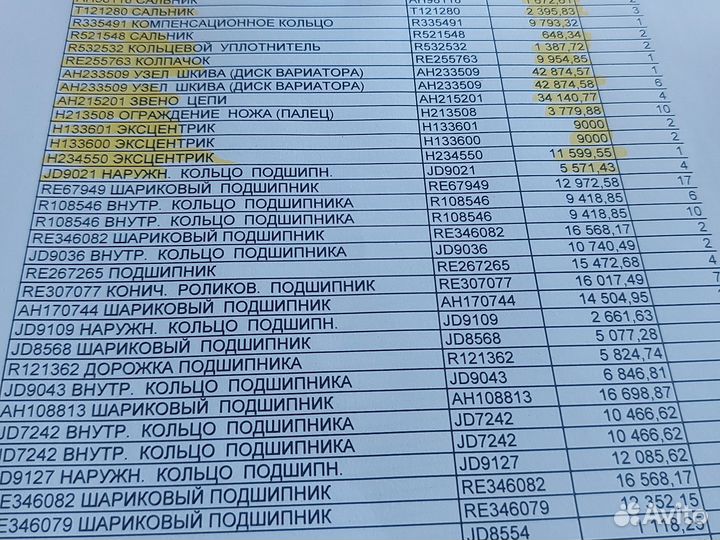 САЛЬНИК
T121280 САЛЬНИК T121280 2 395,83 3
R335491 КОМПЕНСАЦИОННОЕ КОЛЬЦО R335491 9 793,32 1
R521548 САЛЬНИК R521548 648,34 2
R532532 КОЛЬЦЕВОЙ УПЛОТНИТЕЛЬ R532532 1 387,72 2
RE255763 КОЛПАЧОК RE255763 9 954,85 1
AH233509 УЗЕЛ ШКИВА (ДИСК ВАРИАТОРА) AH233509 42 874,57 1
AH233509 УЗЕЛ ШКИВА (ДИСК ВАРИАТОРА) AH233509 42 874,58 6
AH215201 ЗВЕНО ЦЕПИ AH215201 34 140,77 4
H213508 ОГРАЖДЕНИЕ НОЖА (ПАЛЕЦ) H213508 3 779,88 10
H133601 ЭКСЦЕНТРИК H133601 9000 2
H133600 ЭКСЦЕНТРИК H133600 9000 2
H234550 ЭКСЦЕНТРИК H234550 11 599,55 1
JD9021 НАРУЖН. КОЛЬЦО ПОДШИПН. JD9021 5 571,43 4
RE67949 ШАРИКОВЫЙ ПОДШИПНИК RE67949 12 972,58 17
R108546 ВНУТР. КОЛЬЦО ПОДШИПНИКА R108546 9 418,85 6
R108546 ВНУТР. КОЛЬЦО ПОДШИПНИКА R108546 9 418,85 10
RE346082 ШАРИКОВЫЙ ПОДШИПНИК RE346082 16 568,17 2
JD9036 ВНУТР. КОЛЬЦО ПОДШИПНИКА JD9036 10 740,49 2
RE267265 ПОДШИПНИК RE267265 15 472,68 4
RE307077 КОНИЧ. РОЛИКОВ. ПОДШИПНИК RE307077 16 017,49
AH170744 ШАРИКОВЫЙ ПОДШИПНИК AH170744 14 504,95
JD9109 НАРУЖН. КОЛЬЦО ПОДШИПН. JD9109 2 661,63
JD8568 ШАРИКОВЫЙ ПОДШИПНИК JD8568 5 077,28
R121362 ДОРОЖКА ПОДШИПНИКА R121362 5 824,74
JD9043 ВНУТР. КОЛЬЦО ПОДШИПНИКА JD9043 6 846,81
AH108813 ШАРИКОВЫЙ ПОДШИПНИК AH108813 16 698,87
JD7242 ВНУТР. КОЛЬЦО ПОДШИПНИКА JD7242 10 466,62
JD7242 ВНУТР. КОЛЬЦО ПОДШИПНИКА JD7242 10 466,62
JD9127 НАРУЖН. КОЛЬЦО ПОДШИПН. JD9127 12 085,62
RE346082 ШАРИКОВЫЙ ПОДШИПНИК RE346082 16 568,17
RE346079 ШАРИКОВЫЙ ПОДШИПНИК RE346079 12 352,15
JD8554
Avito